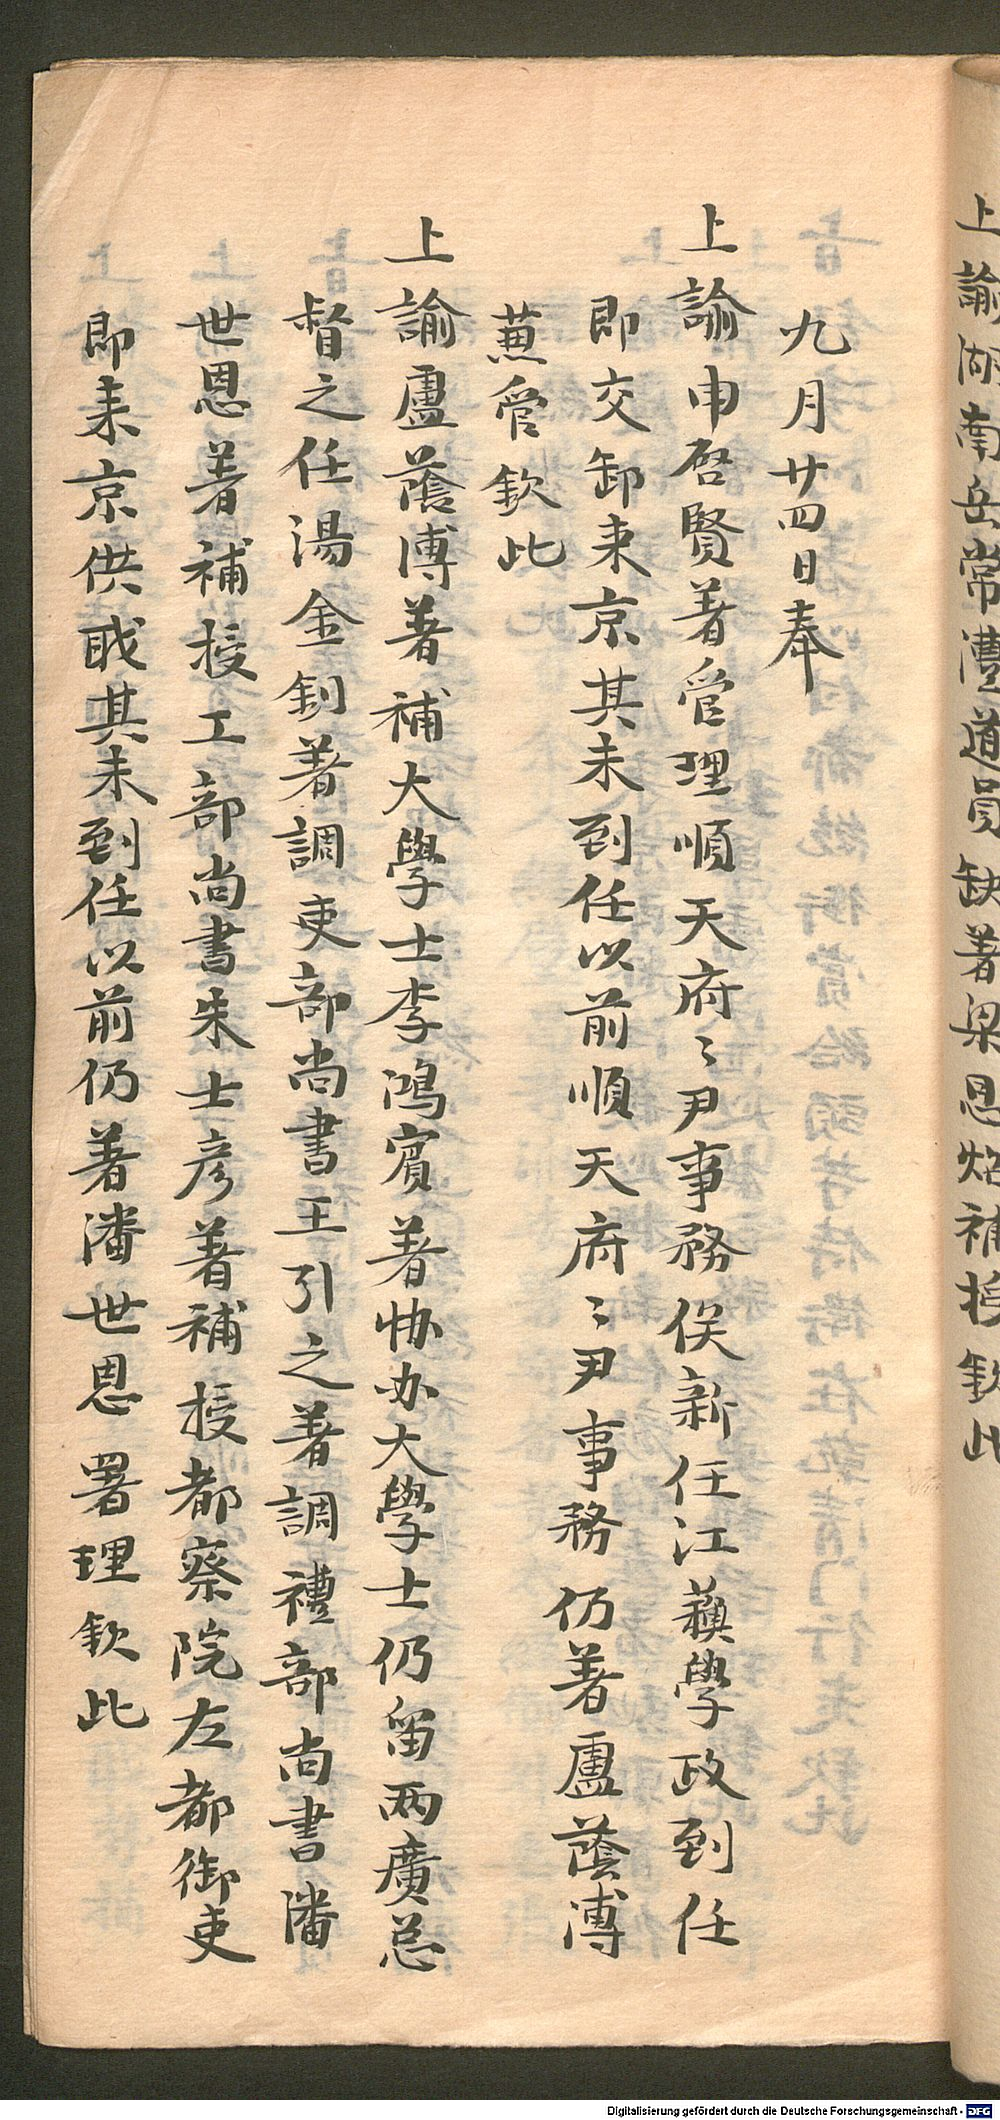 上諭湖南岳常澧道員缺著梁恩焰補授欽此
九月廿四日奉
上諭申啓賢著管理順天府〻尹事務俟新任江蘓學政到任
即交卸来京其未到任以前順天府〻尹事務仍著盧蔭溥
蒐管欽此
上諭盧蔭溥著補大學士李鴻賓著协办大學士仍留两廣总
督之任湯金釗著調吏部尚書王引之著調禮部尚書潘
世恩著補授工部尚書朱士彦著補授都察院左都御吏
即来京供职其未到任以前仍著潘世恩署理欽此
Digitalisierung gefördert durch die Deutsche Forschungsgemeinschaft - DFG